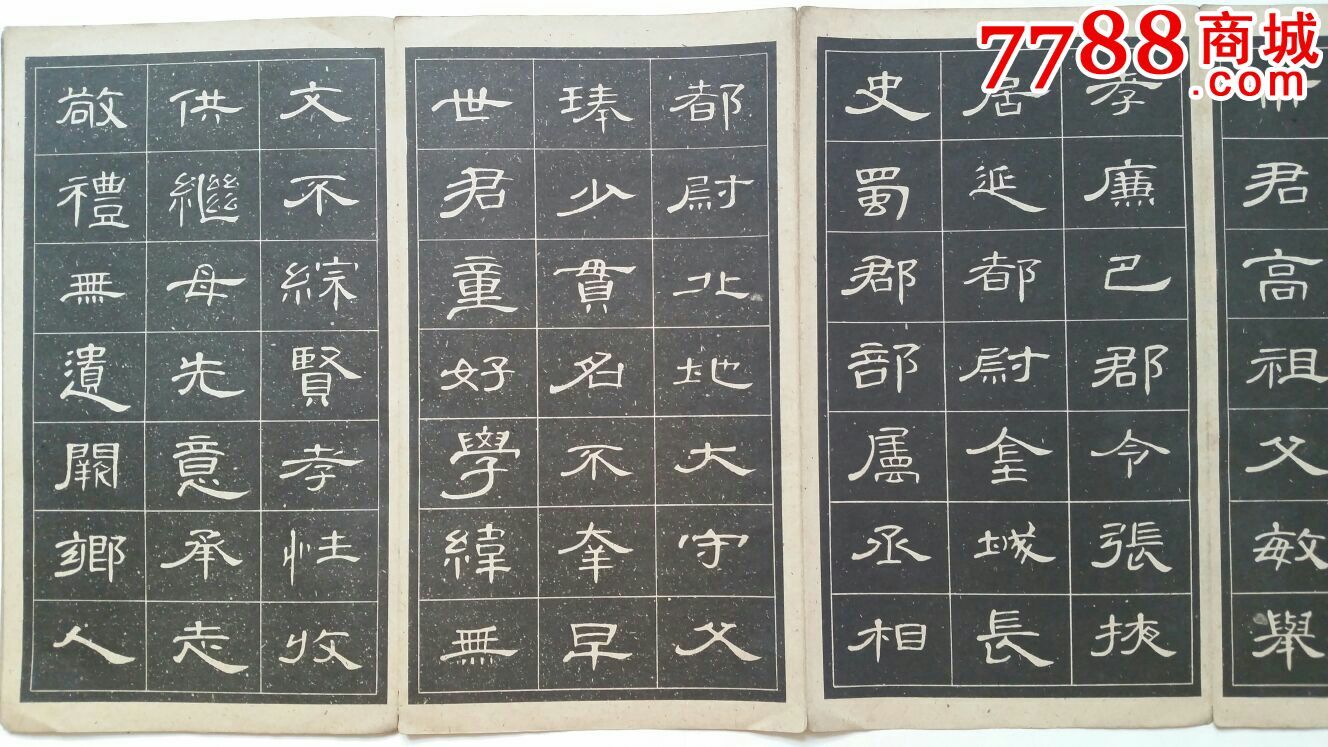 7788商城
.com
君高祖父敏舉
孝廉巴郡令張掖
居延都尉金城長
史蜀郡部屬丞相
都尉北地大守父
琫少貫名不幸早
世君童好學緯無
文不綜賢孝性收
供繼母先意承志
敬禮無遺闕鄉人